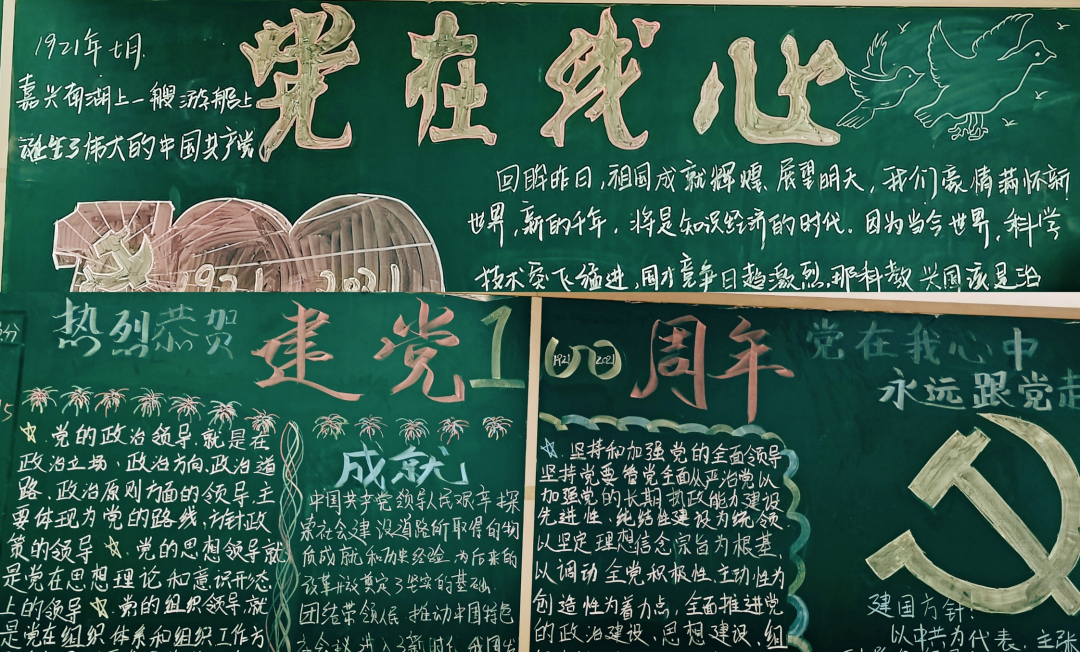 党在我心
1921年七月.
嘉兴南湖上一艘游船上
诞生了伟大的中国共产党
1921 2021
回眸昨日,祖国成就辉煌 展望明天,我们豪情满怀新
世界,新的千年,将是知识经济的时代。因为当今世界,科学
技术突飞猛进,国力竞争日趋激烈,那科教兴国该是治
热烈恭贺
建党1
成就
☆.党的政治领导.就是在
政治立场、政治方向、政治道
路、政治原则方面的领导.主
要体现为党的路线、方针政
策的领导 ☆.党的思想领导就
是党在思想理论和意识形态
上的领导 ☆.党的组织领导.就
是党在组织体系和组织工作方
中国共产党领导人民艰辛探
索社会建设道路所取得的物
质成就和历史经验,为后来的
改革开放奠定了坚实的基础.
团结带领人民 推动中国特色
00周年
1921 2021
党在我心中
永远跟党走
☆.坚持和加强党的全面领导
坚持党要管党全面从严治党以
加强党的长期执政能力建设
先进性、纯洁性建设为统领
以坚定理想信念宗旨为根基,
以调动全党积极性、主动性为
创造性为着力点,全面推进党
的政治建设、思想建设、组
建国方针:
以中共为代表、主张